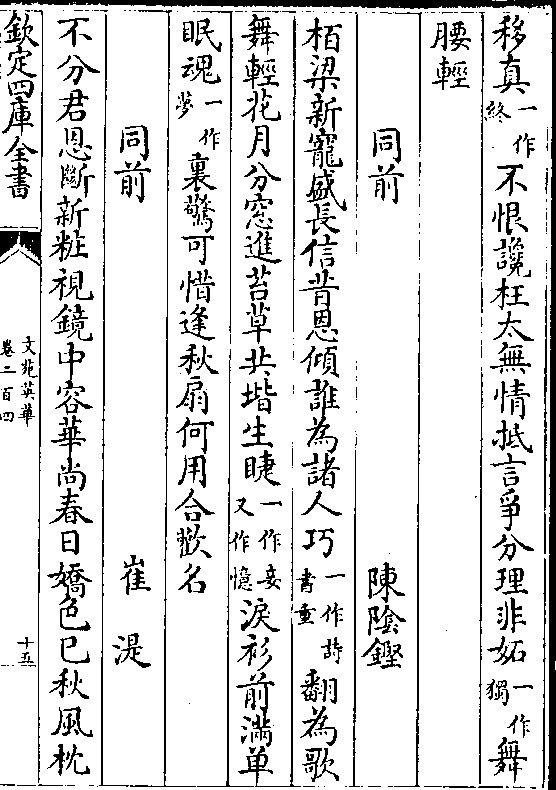 移真一作終不恨讒枉太無情抵言爭分理非妬一作獨舞
腰輕
同前 陳陰鏗
栢梁新寵盛長信昔恩傾誰為諸人巧一作詩書重翻為歌
舞輕花月分窓進苔草共堦生睫一作妾又作憶淚衫前滿单
眠魂一作夢裏驚可惜逢秋扇何用合歡名
同前 崔湜
不分君恩斷新粧視鏡中容華尚春日嬌色已秋風枕
欽定四庫全書
文苑英華
卷二百四
十五